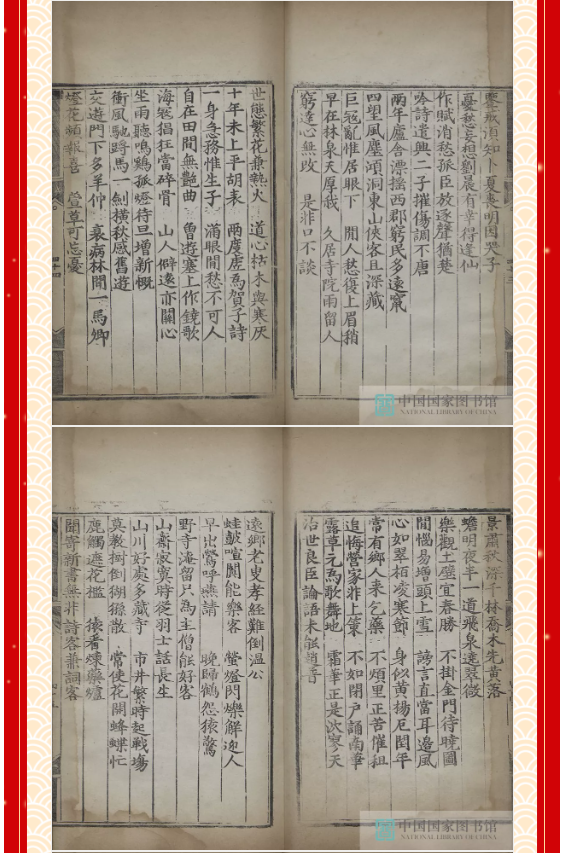 須知卜夏喪明因哭子
憂愁莫想劉晨有幸得逢仙
作賦消愁孤臣放逐聲猶楚
吟詩遣興二子摧傷調不唐
兩年廬舍漂摇西郡窮民多遠竄
四望風塵澒洞東山俠客且深藏
巨寇亂惟居眼下 閒人愁復上眉稍
早在林泉天厚我 久居寺院雨留人
窮達心無改 是非口不談
世態繁花兼熱火 道心枯木與寒灰
十年未上平胡表 兩度虛爲賀子詩
一身急務惟生子 滿眼閒愁不可人
自在田間無艷曲 曾遊塞上作鐃歌
海冦猖狂當碎骨 山人僻遠亦關心
坐雨聽鳴鷄孤燈待旦增新慨
衝風馳馬一劍橫秋感舊遊
交遊門下多羊仲 衰病林間一馬卿
燈花頻報喜 萱草可忘憂
中国国家图书馆
NATIONAL LIBRARY OF CHINA
景肅秋深千林喬木先黄落
蟾明夜半一道飛泉遠翠微
樂觀土壁宜春勝 不掛金門待曉圖
閒惱易增頭上雪 謗言直當耳邊風
心如翠栢凌寒節 身似黄楊厄閏年
常有鄉人来乞藥 不煩里正苦催租
追悔營家非上策 不如閉户誦南華
露草元爲歌舞地 霜華正是泬寥天
治世良臣論語未能
遠鄉老叟孝經難倒溫公
蛙鼓喧闐能樂客 螢燈閃爍解迎人
早出鶯呼燕請 晚歸鶴怨猿驚
野寺淹留只爲主僧能好客
山齋寂寞時從羽士話長生
山川好處多藏寺 市井繁時起戰塲
莫教樹倒猢猻散 常使花開蜂蝶忙
鹿觸遮花檻 猿看煉藥爐
聞寄新書無非詩客兼詞客
中国国家图书馆
NATIONAL LIBRARY OF CHINA